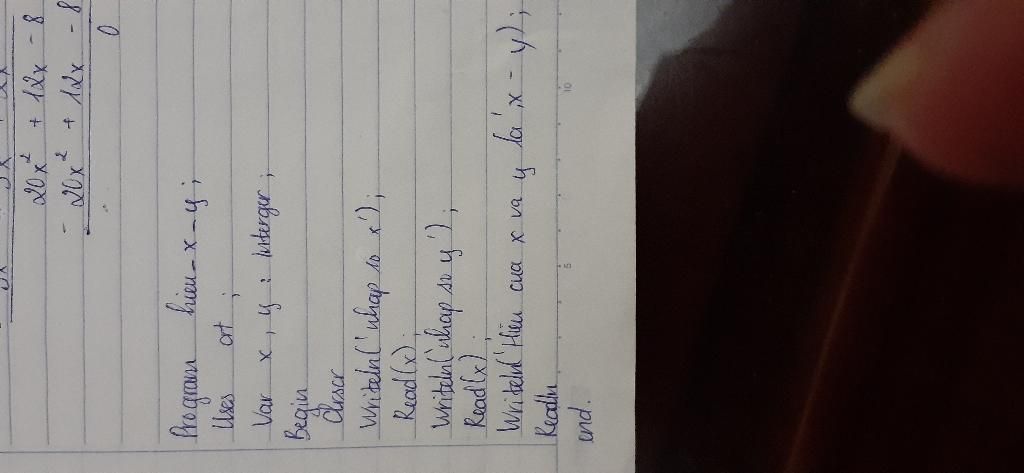 20x² + 12x - 8
- 20x² + 12x - 8
0
Program hieu-x-y;
Uses crt;
Var x, y : interger;
Begin
Clrscr
Writeln('nhap so x');
Read(x);
Writeln('nhap so y');
Read(x);
Writeln('Hiệu cua x va y là', x - y);
Readln
end.
5
10